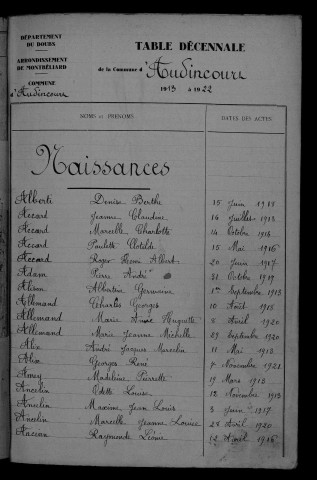 DÉPARTEMENT
DU DOUBS
ARRONDISSEMENT
DE MONTBÉLIARD
COMMUNE
d'Audincourt
TABLE DÉCENNALE
de la Commune d'Audincourt
1913 à 1922
NOMS et PRÉNOMS
DATES DES ACTES
Naissances
Alberti Denise Berthe 15 Juin 1918
Accard Jeanne Claudine 16 Juillet 1913
Accard Marcelle Charlotte 14 Octobre 1914
Accard Paulette Clotilde 15 Mai 1916
Accard Roger Henri Albert 20 Juin 1917
Adam Pierre André 31 Octobre 1919
Alison Albertine Germaine 1er Septembre 1913
Allemand Charles Georges 10 Août 1915
Allemand Marie Aimée Huguette 8 Avril 1920
Allemand Marie Jeanne Michelle 29 Septembre 1920
Alix André Jacques Marcelin 11 Mai 1913
Alix Georges René 7 Novembre 1921
Amey Madeleine Pierrette 19 Mars 1913
Ancelin Odette Louise 12 Novembre 1913
Anselin Maxime Jean Louis 3 Juin 1917
Ancelin Marcelle Jeanne Louise 28 Avril 1920
Raymonde Léonie 12 Avril 1916